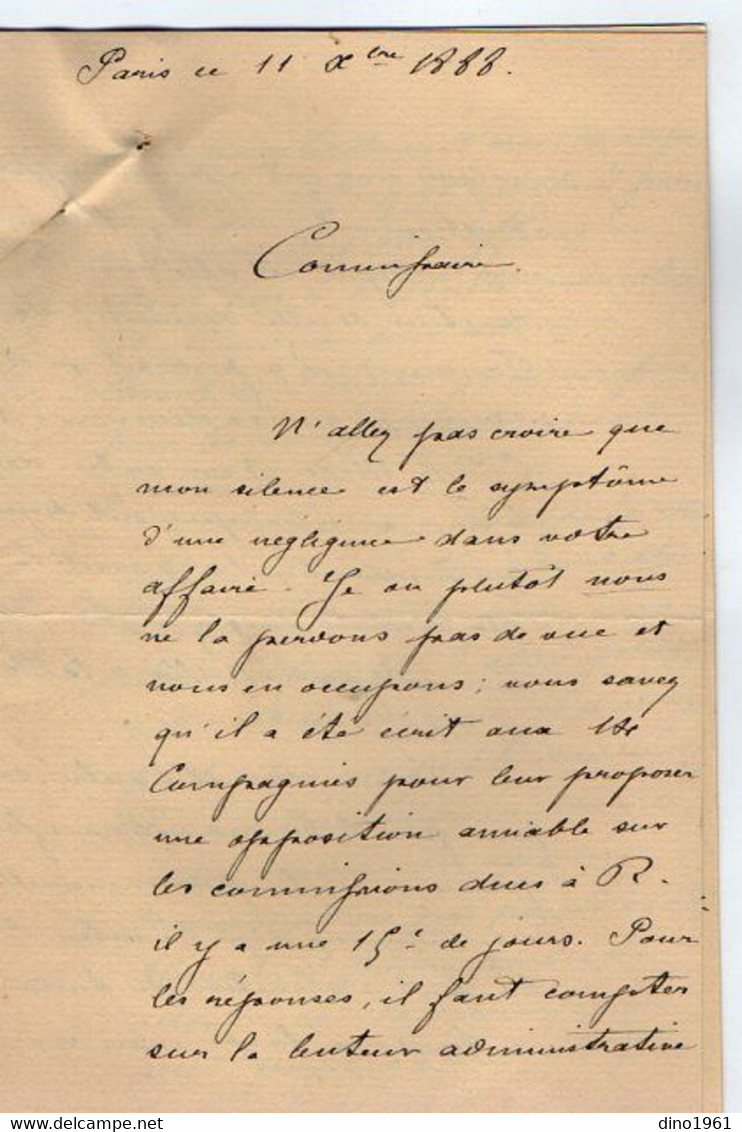 Paris ce 11 Xbre 1888.
Commissaire.
N'allez pas croire que
mon silence est le symptôme
d'une négligence dans votre
affaire. Je ou plutôt nous
ne la perdons pas de vue et
nous en occupons ; vous savez
qu'il a été écrit aux
Compagnies pour leur proposer
une opposition amiable sur
les commissions dues à R.
il y a une 15e de jours. Pour
les réponses, il faut compter
sur la lenteur administrative
dino1961